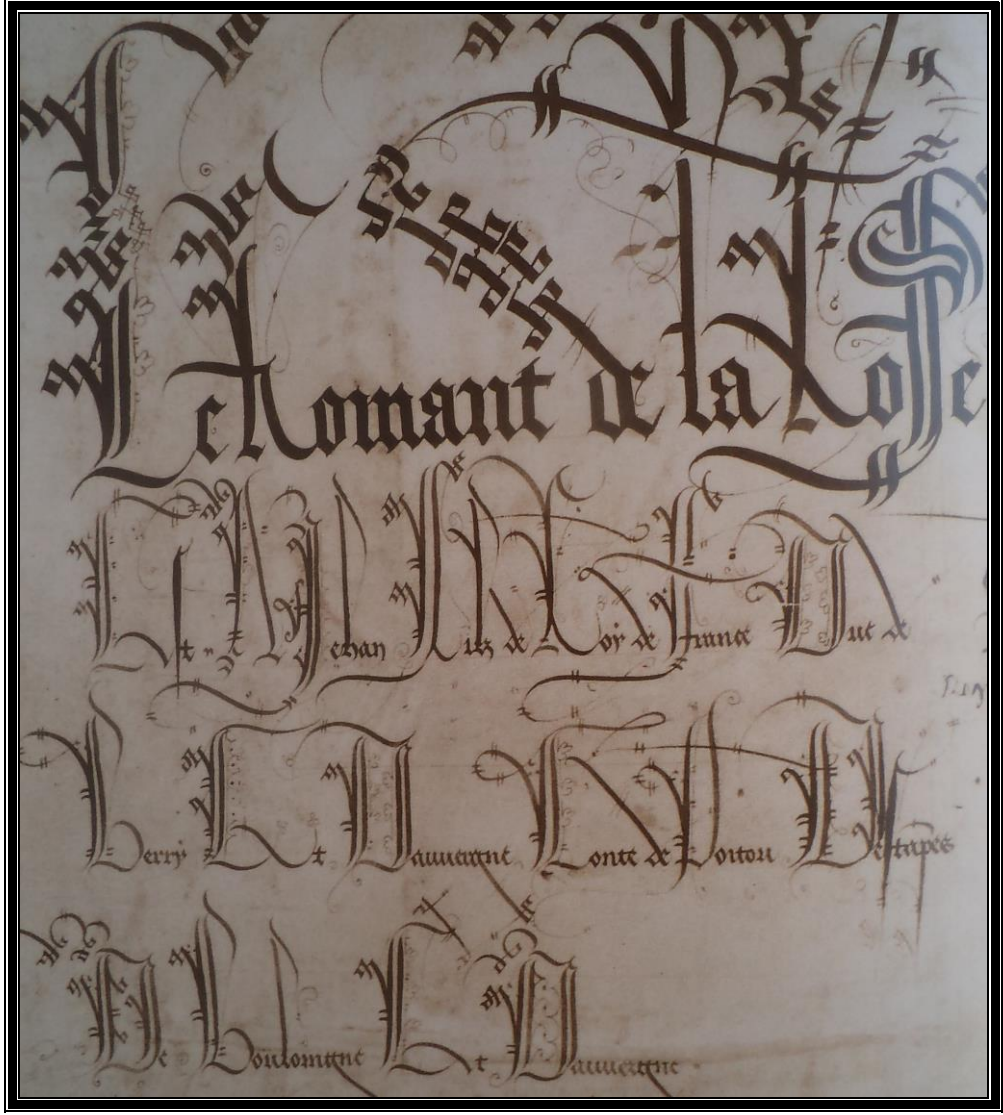 Le Romant de la Rose
Est A Jehan Filz de Roy de France Duc de
Berry Et Dauvergne Conte de Poitou Destapes
De Bouloingne Et Dauvergne.